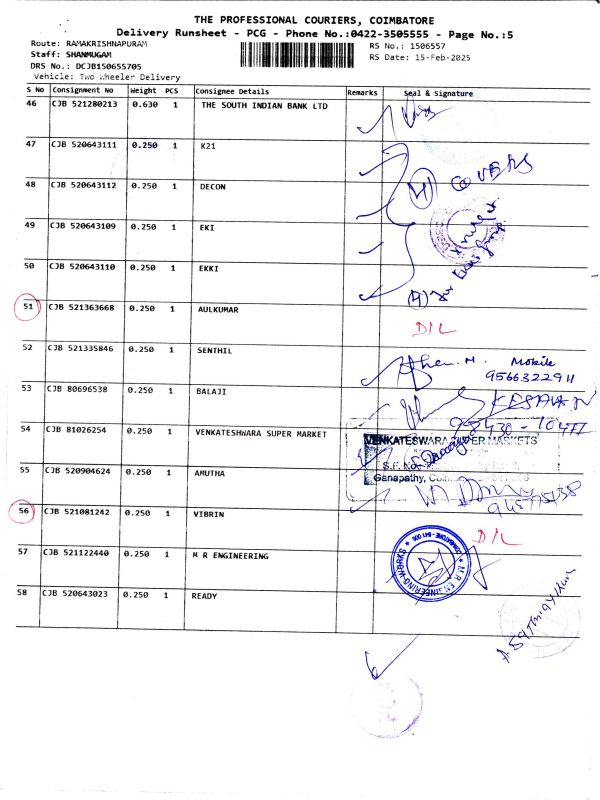 THE PROFESSIONAL COURIERS, COIMBATORE
Delivery Runsheet - PCG - Phone No.:0422-3505555 - Page No.:5
Route: RAMAKRISHNAPURAM
RS No.: 1506557
Staff: SHANMUGAM
RS Date: 15-Feb-2025
DRS No.: DCJB150655705
Vehicle: Two Wheeler Delivery
S No Consignment No Weight PCS Consignee Details Remarks Seal & Signature
46 CJB 521280213 0.630 1 THE SOUTH INDIAN BANK LTD
47 CJB 520643111 0.250 1 K21
48 CJB 520643112 0.250 1 DECON
(4) COVERS
49 CJB 520643109 0.250 1 EKI
50 CJB 520643110 0.250 1 EKKI
(4)
51 CJB 521363668 0.250 1 AULKUMAR
D/L
52 CJB 521335846 0.250 1 SENTHIL
Mobile
9566322911
53 CJB 80696538 0.250 1 BALAJI
KESAVAN
98430-70477
54 CJB 81026254 0.250 1 VENKATESHWARA SUPER MARKET
VENKATESWARA SUPER MARKETS
S.F. No.
Ganapathy,
55 CJB 520904624 0.250 1 AMUTHA
56 CJB 521081242 0.250 1 VIBRIN
D/L
57 CJB 521122440 0.250 1 M R ENGINEERING
M.R. ENGINEERING WORKS
COIMBATORE - 641 006
58 CJB 520643023 0.250 1 READY